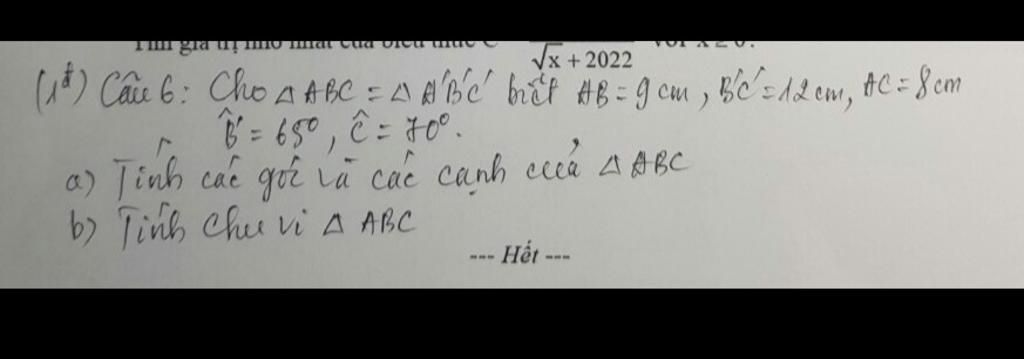 Tìm giá trị nhỏ nhất của biểu thức C √x + 2022 với x ≥ 0.
(1đ) Câu 6: Cho △ ABC = △ A'B'C' biết AB = 9 cm, B'C' = 12 cm, AC = 8 cm
B̂' = 65°, Ĉ = 70°.
a) Tính các góc và các cạnh của △ ABC
b) Tính chu vi △ ABC
--- Hết ---